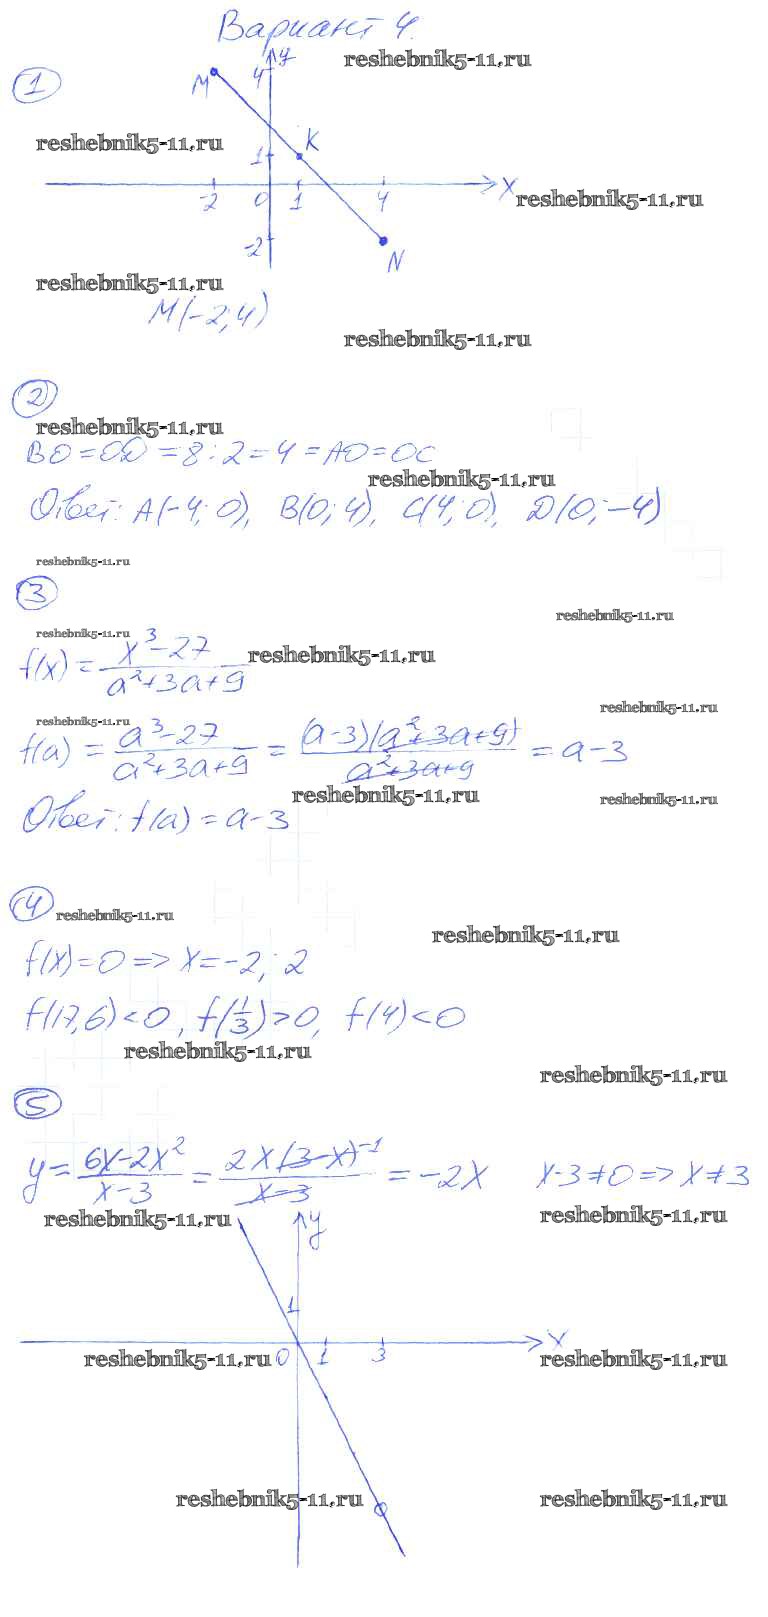 Вариант 4.
reshebnik5-11.ru
1
M 4 y
reshebnik5-11.ru
K
1
-2 0 1 4 X
reshebnik5-11.ru
-2
N
reshebnik5-11.ru
M(-2; 4)
reshebnik5-11.ru
2
reshebnik5-11.ru
BO=OD=8:2=4=AO=OC
reshebnik5-11.ru
Ответ: A(-4; 0), B(0; 4), C(4; 0), D(0; -4)
reshebnik5-11.ru
3
reshebnik5-11.ru
reshebnik5-11.ru
f(x) = (x³-27)/(a²+3a+9)
reshebnik5-11.ru
reshebnik5-11.ru
reshebnik5-11.ru
f(a) = (a³-27)/(a²+3a+9) = (a-3)(a²+3a+9)/(a²+3a+9) = a-3
reshebnik5-11.ru
reshebnik5-11.ru
Ответ: f(a) = a-3
4
reshebnik5-11.ru
reshebnik5-11.ru
f(x)=0 => x=-2; 2
f(17,6)<0, f(1/3)>0, f(4)<0
reshebnik5-11.ru
reshebnik5-11.ru
5
y = (6x-2x²)/(x-3) = 2x(3-x)⁻¹/(x-3) = -2x x-3≠0 => x≠3
reshebnik5-11.ru
reshebnik5-11.ru
y
1
X
0 1 3
reshebnik5-11.ru
reshebnik5-11.ru
reshebnik5-11.ru
reshebnik5-11.ru